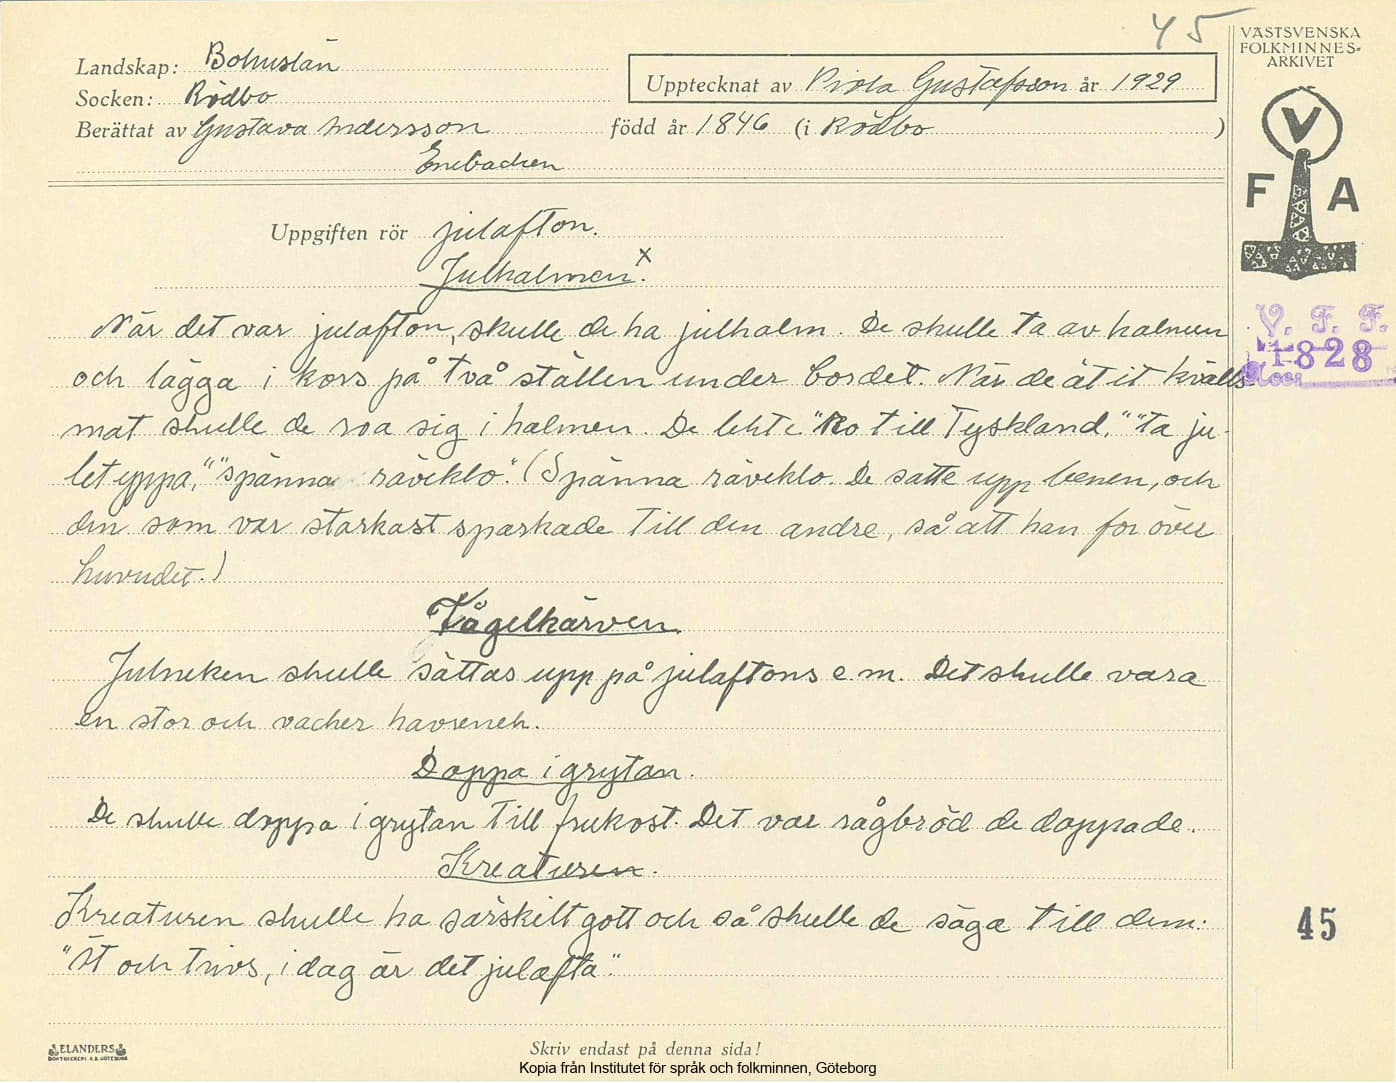 45
VÄSTSVENSKA
FOLKMINNES-
ARKIVET
Landskap: Bohuslän
Socken: Rödbo
Upptecknat av Viola Gustafsson år 1929
Berättat av Gustava Andersson född år 1846 (i Rödbo )
Enebacken
V
F A
Uppgiften rör julafton.
Julhalmen. x
När det var julafton, skulle de ha julhalm. De skulle ta av halmen
och lägga i kors på två ställen under bordet. När de ätit kvälls
mat skulle de roa sig i halmen. De lekte "Ro till Tyskland," "ta ju-
let uppa," "spänna räveklo". (Spänna räveklo. De satte upp benen, och
den som var starkast sparkade till den andre, så att han for över
huvudet.)
V. F. F.
1828
Fågelkärven.
Julneken skulle sättas upp på julaftons e m. Det skulle vara
en stor och vacker havrenek.
Doppa i grytan.
De skulle doppa i grytan till frukost. Det var rågbröd de doppade.
Kreaturen.
Kreaturen skulle ha särskilt gott och så skulle de säga till dem:
"Ät och trivs, i dag är det julafta".
45
ELANDERS
BOKTRYCKERI A.B. GÖTEBORG
Skriv endast på denna sida!
Kopia från Institutet för språk och folkminnen, Göteborg